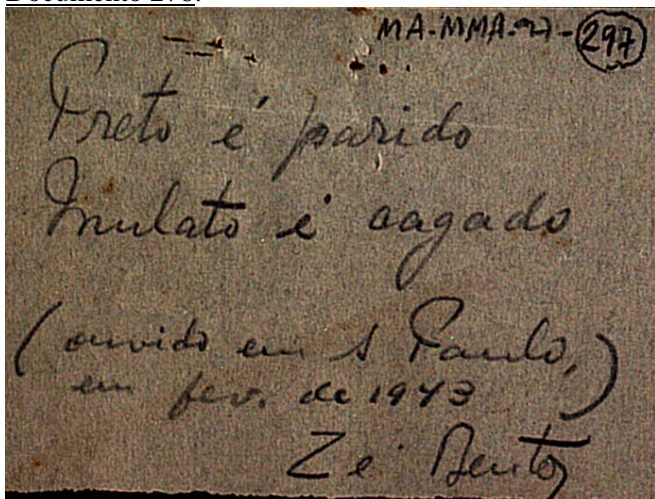 MA-MMA-27-297
Preto é parido
Mulato é cagado
(ouvido em S Paulo,
em fev. de 1943)
Zé Bento